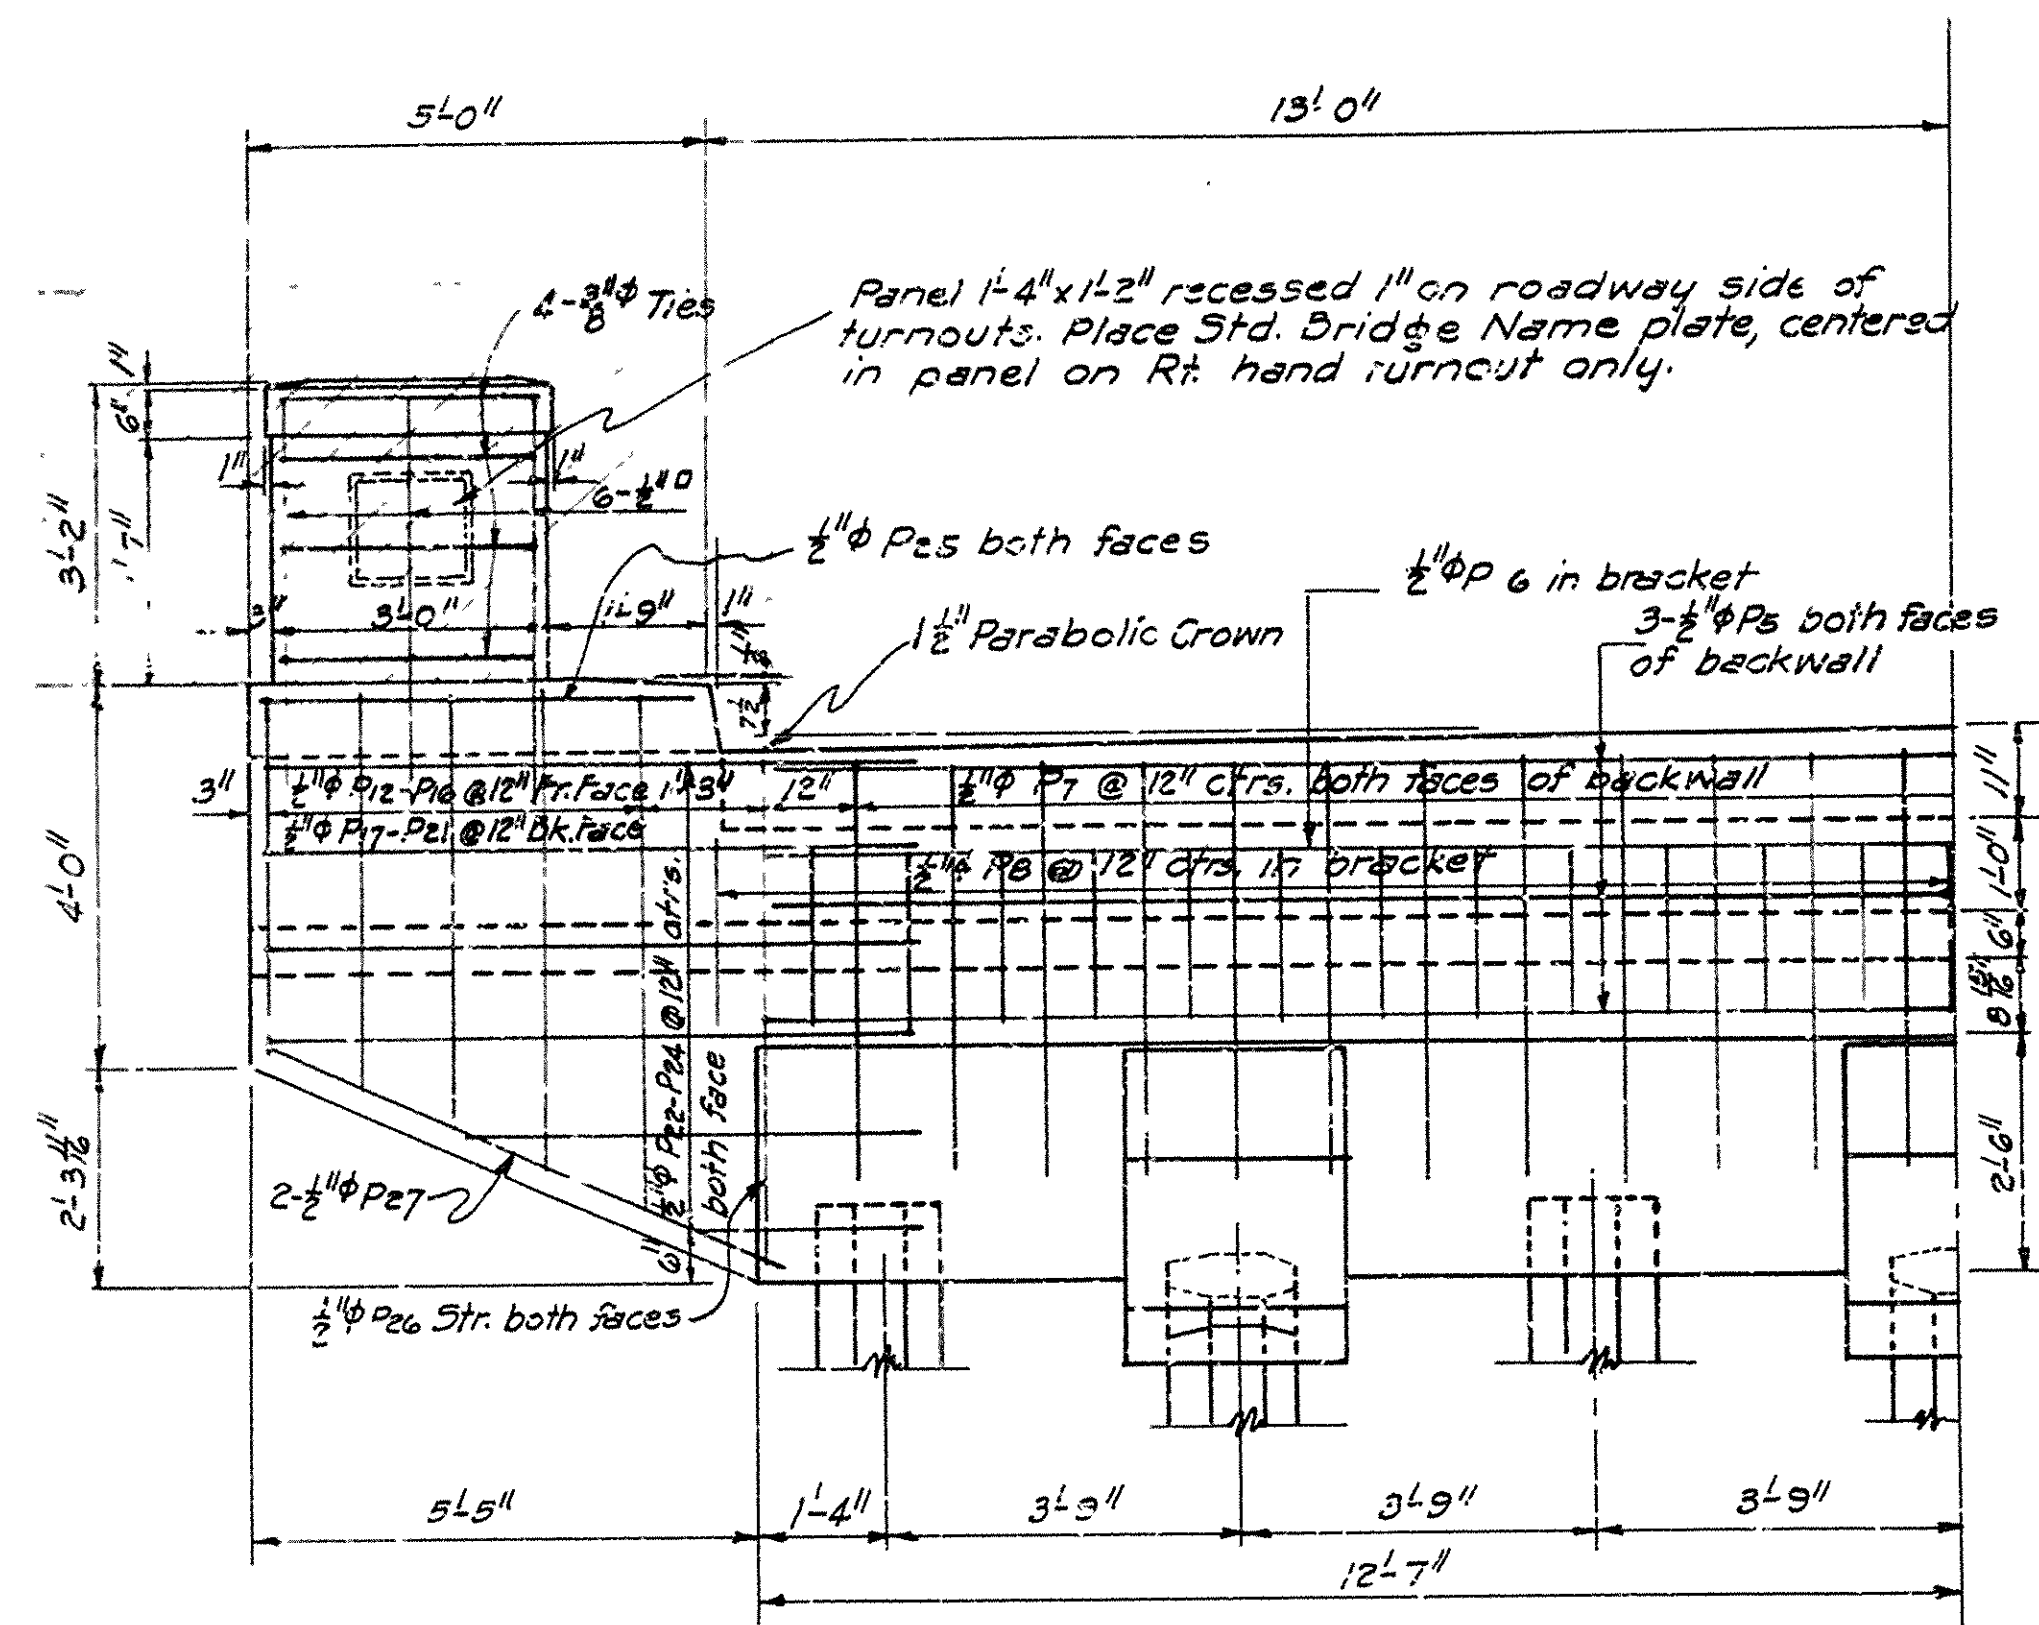 5'-0"
13'-0"
Panel 1'-4" x 1'-2" recessed 1" on roadway side of
turnouts. Place Std. Bridge Name plate, centered
in panel on Rt. hand turnout only.
4-3/8"ϕ Ties
1"
6"
1"
1"
6-1/2"□
3'-2"
7"
1/2"ϕ P25 both faces
1/2"ϕ P 6 in bracket
3-1/2"ϕ P5 both faces
of backwall
3"
3'-0"
1'-9"
1"
1 1/2" Parabolic Crown
7 1/2
3"
1/2"ϕ P12-P16 @ 12" Fr. Face
1/2"ϕ P17-P21 @ 12" Bk. Face
1"
3"
12"
1/2"ϕ P7 @ 12" ctrs. both faces of backwall
1/2"ϕ P8 @ 12" ctrs. in bracket
11"
1'-0"
6"
8 15/16"
2'-6"
4'-0"
2'-3 11/16"
1/2"ϕ P22-P24 @ 12" ctrs.
both face
2-1/2"ϕ P27
6"
1/2"ϕ P26 Str. both faces
5'-5"
1'-4"
3'-9"
3'-9"
3'-9"
12'-7"